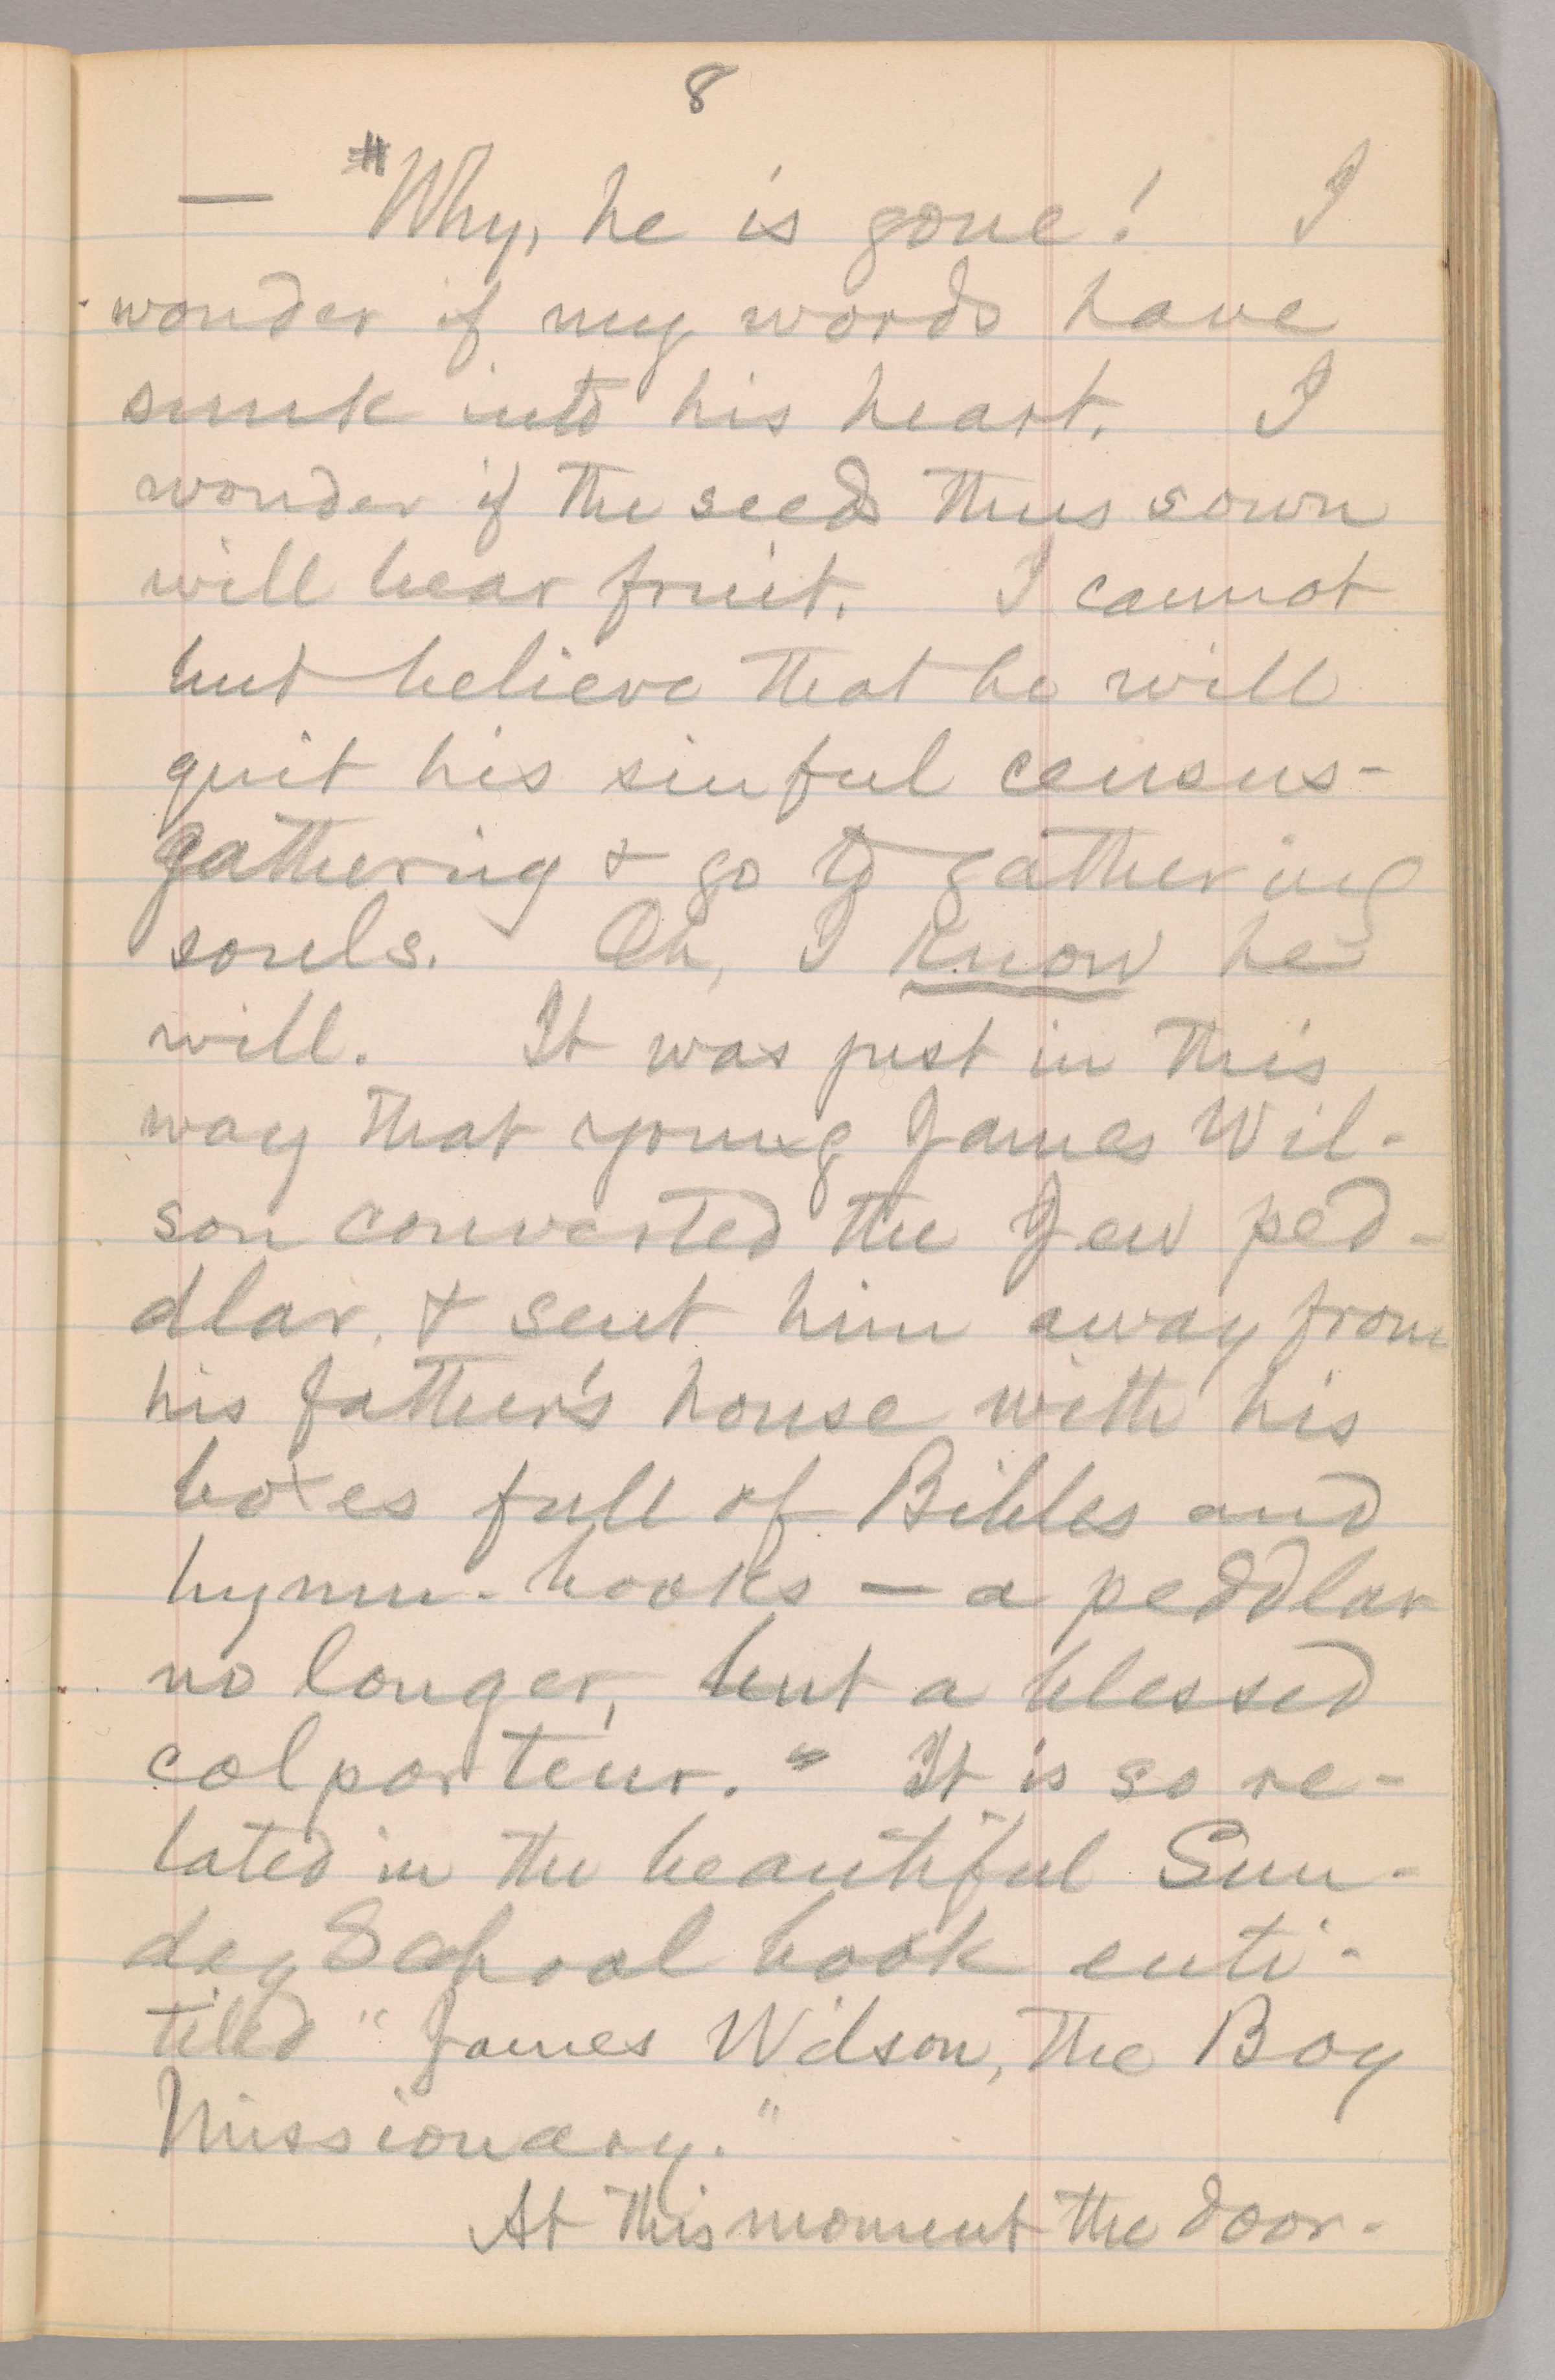 8
— "Why, he is gone! I
wonder if my words have
sunk into his heart. I
wonder if the seeds thus sown
will bear fruit. I cannot
but believe that he will
quit his sinful census-
gathering & go to gathering
souls. Oh, I know he
will. It was just in this
way that young James Wil-
son converted the Jew ped-
dlar, & sent him away from
his father's house with his
boxes full of Bibles and
hymn-books — a peddlar
no longer, but a blessed
colporteur." It is so re-
lated in the beautiful Sun-
day School book enti-
tled "James Wilson, the Boy
Missionary."
At this moment the door-